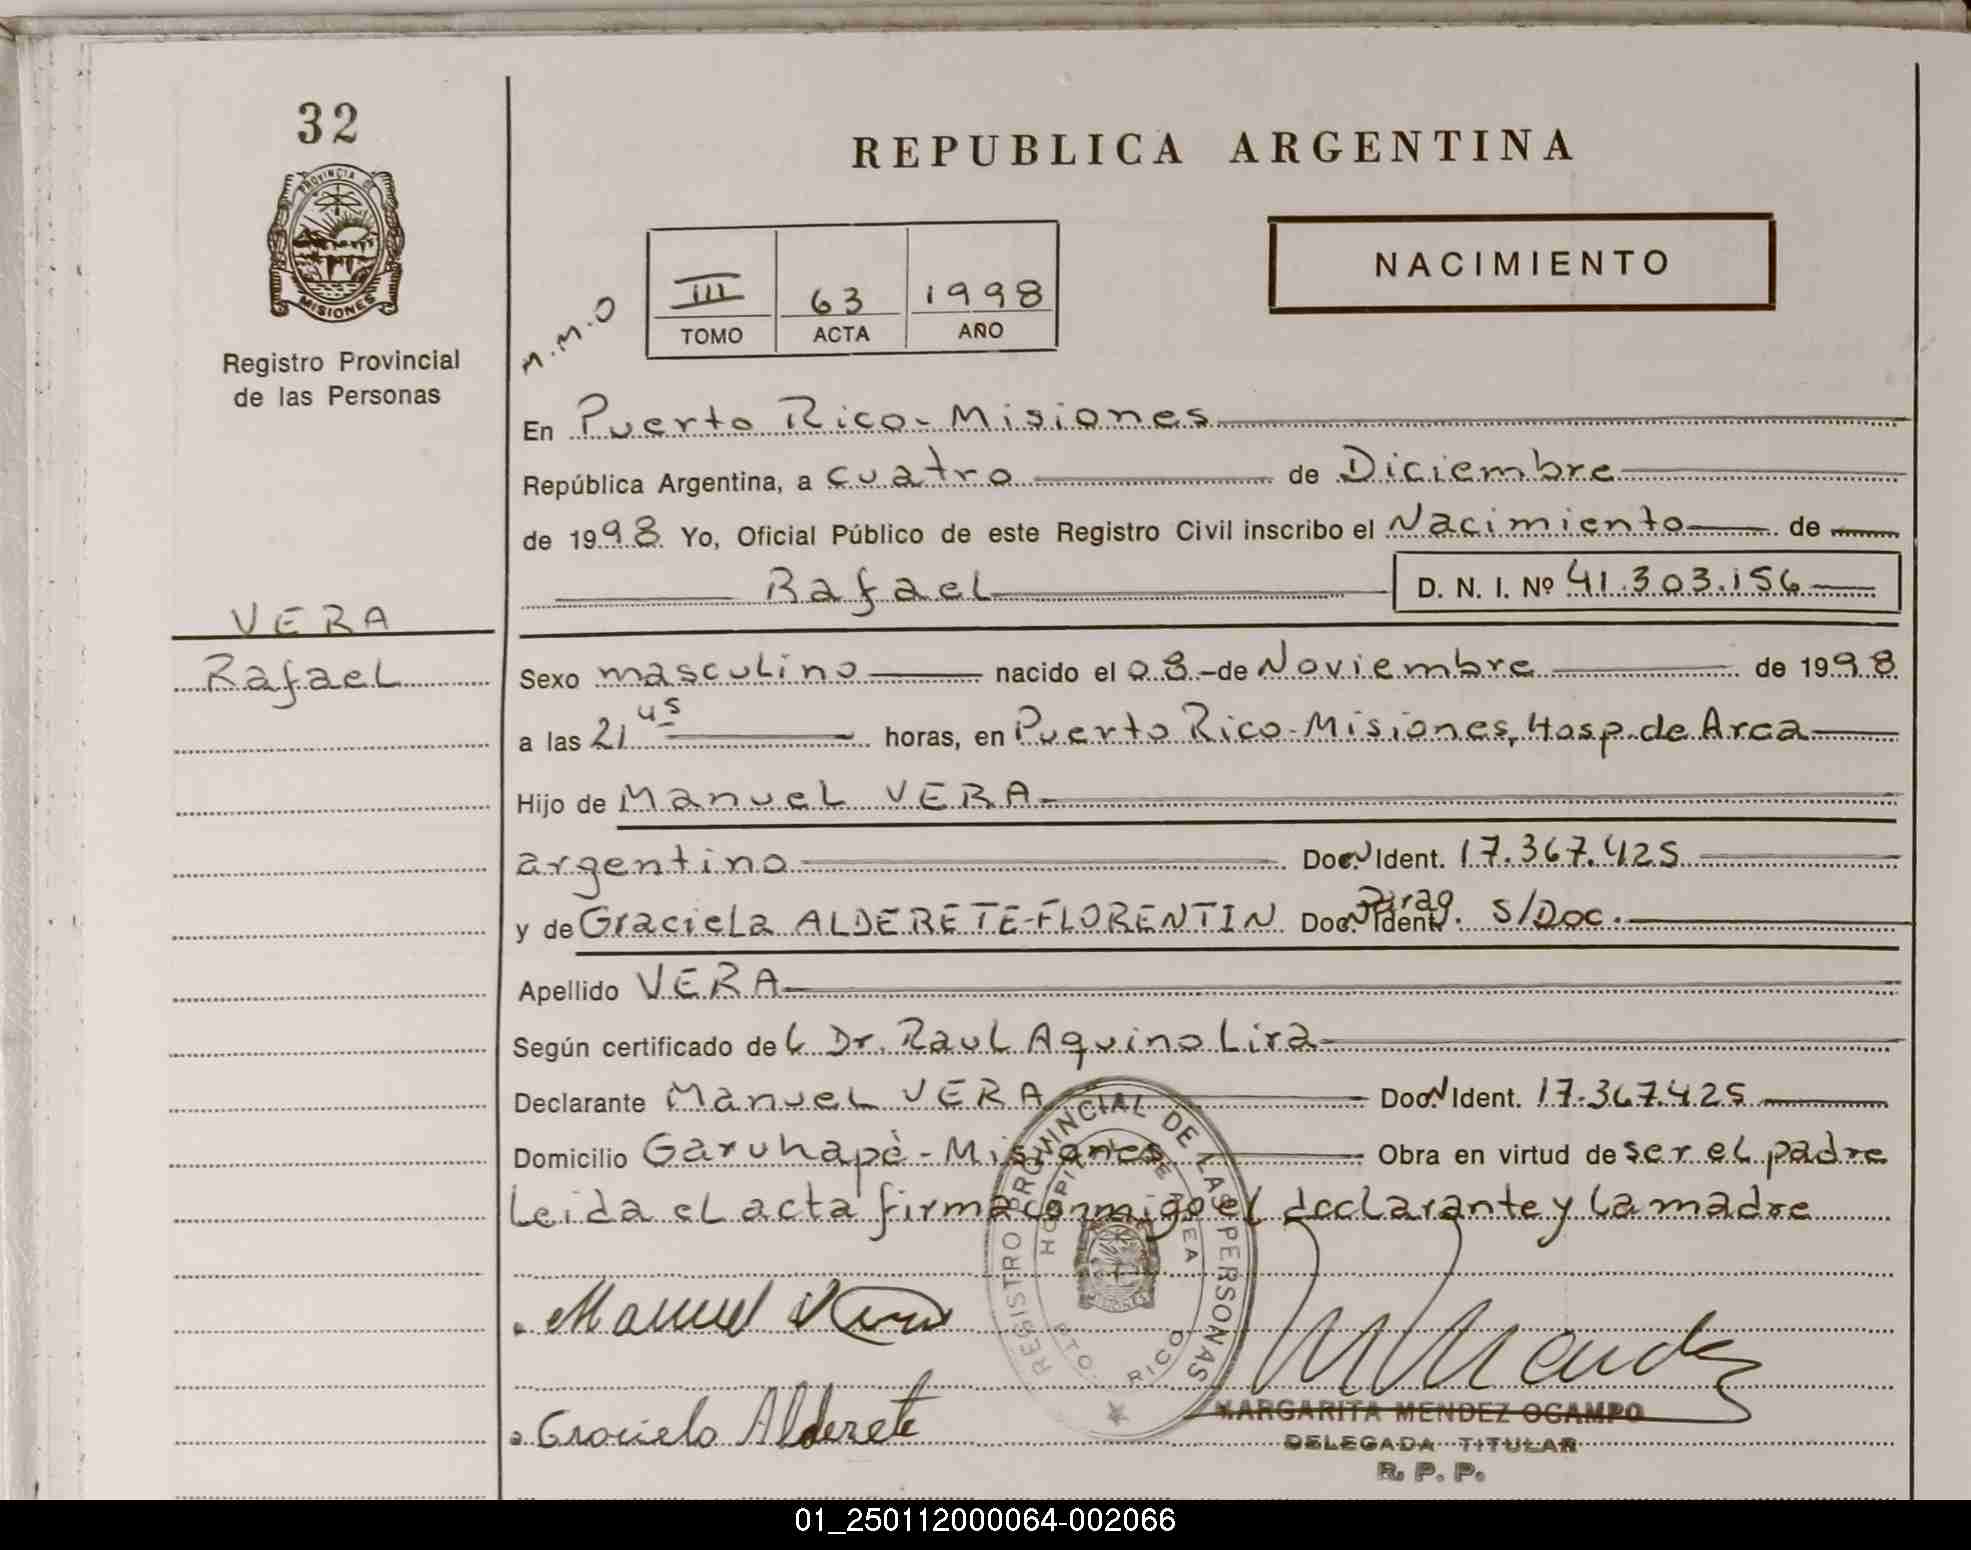 32
PROVINCIA DE
MISIONES
Registro Provincial
de las Personas
VERA
Rafael
REPUBLICA ARGENTINA
NACIMIENTO
M.M.O
III 63 1998
TOMO ACTA AÑO
En Puerto Rico - Misiones
República Argentina, a cuatro de Diciembre
de 1998 Yo, Oficial Público de este Registro Civil inscribo el Nacimiento de
Rafael D. N. I. Nº 41.303.156
Sexo masculino nacido el 08 - de Noviembre de 1998
a las 21 45 horas, en Puerto Rico - Misiones, Hosp. de Area
Hijo de Manuel VERA
argentino Doc. N Ident. 17.367.425
y de Graciela ALDERETE - FLORENTIN Doc. N Ident. Parag. S/Doc.
Apellido VERA
Según certificado del Dr. Raul Aquino Lira
Declarante Manuel VERA Doc. N Ident. 17.367.425
Domicilio Garuhapè - Misiones Obra en virtud de ser el padre
Leida el acta firma conmigo el declarante y la madre
REGISTRO PROVINCIAL DE LAS PERSONAS
HOPITAL DE AREA
PTO. RICO
Manuel Vera
Graciela Alderete
M Mendez
MARGARITA MENDEZ OCAMPO
DELEGADA TITULAR
R. P. P.
01_250112000064-002066